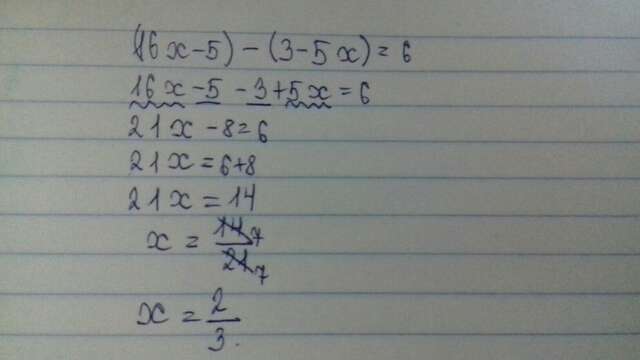 (16x-5)-(3-5x)=6
16x-5-3+5x=6
21x-8=6
21x=6+8
21x=14
x=14 7/21 7
x=2/3.